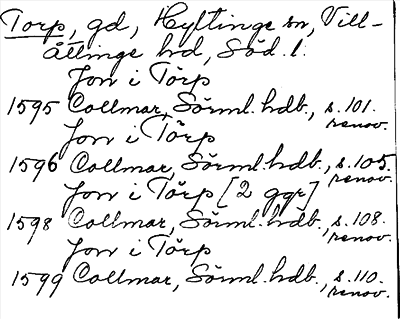 Torp, gd, Hyltinge sn, Vill-
åttinge hd, Söd. l.
Jon i Torp
1595 Collmar, Sörml. hdb., s. 101.
renov.
Jon i Torp
1596 Collmar, Sörml. hdb., s. 105.
renov.
Jon i Torp [2 ggr]
1598 Collmar, Sörml. hdb., s. 108.
renov.
Jon i Torp
1599 Collmar, Sörml. hdb., s. 110.
renov.